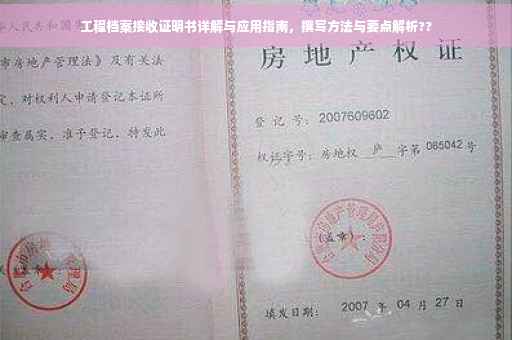 工程档案接收证明书详解与应用指南,撰写方法与要点解析??
人民共和国
市房地产管理法》及有关法
定，对权利人申请登记本证所
审查属实，准予登记，特发此
房地产权证
登记号：2007609602
权证字号：房地权 庐 字第 065042 号
(盖章)：
填发日期：2007 年 04 月 27 日